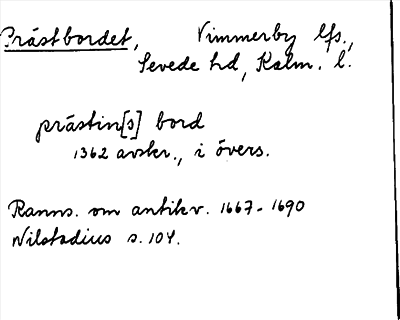 Prästbordet, Vimmerby lfs.,
Sevede hd, Kalm. l.
prästin[s] bord
1362 avskr., i övers.
Ranns. om antikv. 1667-1690
Nilstadius s. 104.